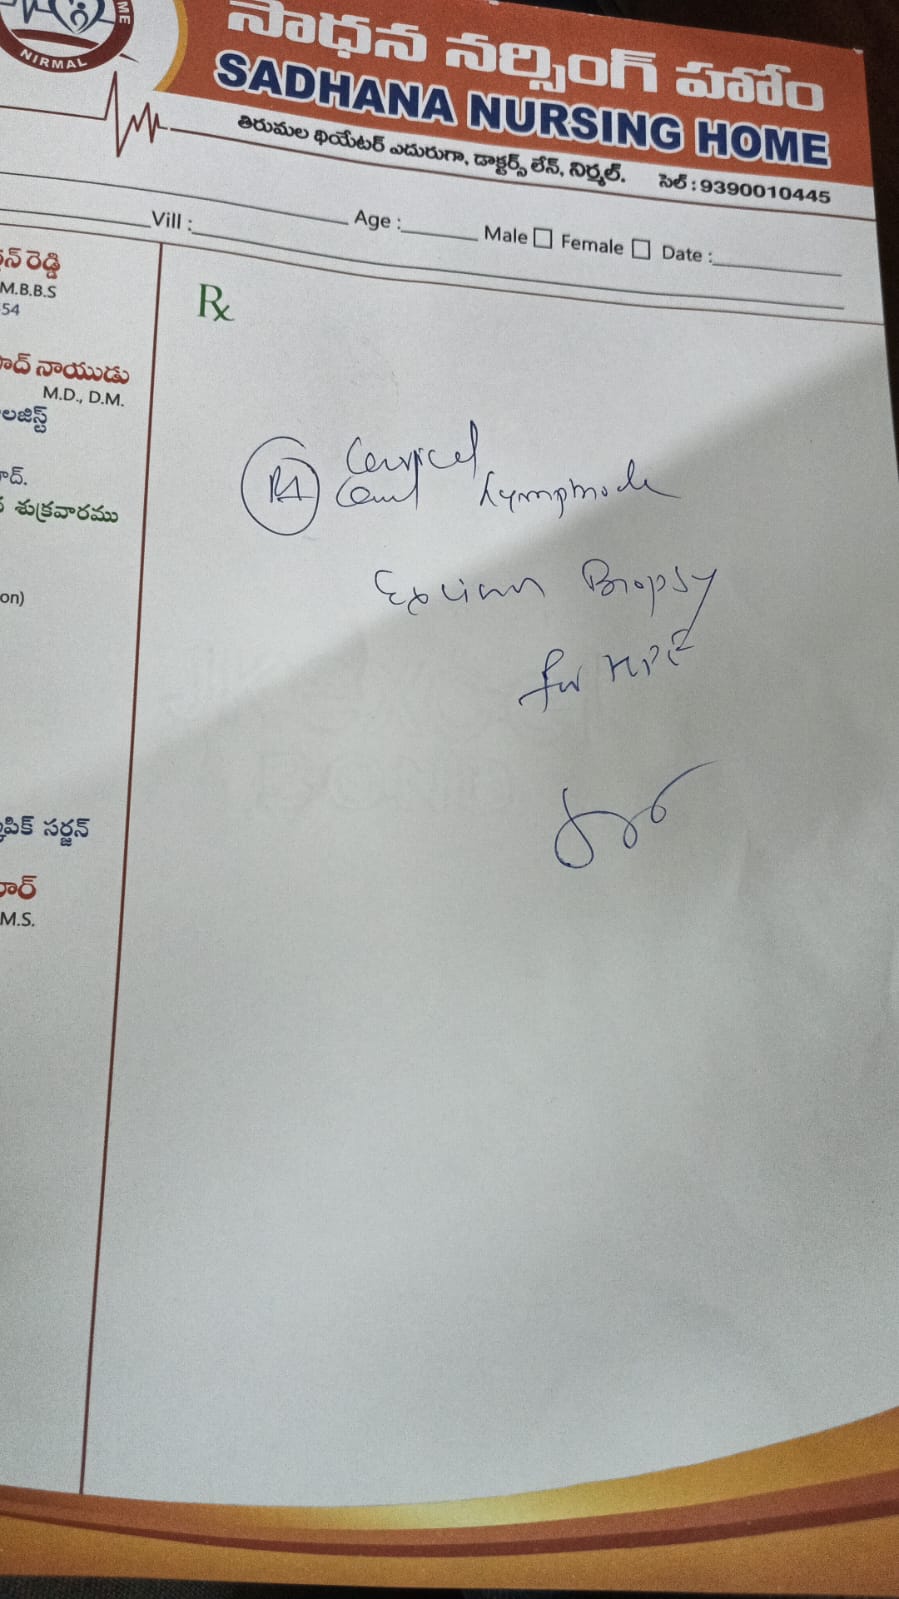 NIRMAL
సాధన నర్సింగ్ హోం
SADHANA NURSING HOME
తిరుమల థియేటర్ ఎదురుగా, డాక్టర్స్ లేన్, నిర్మల్. సెల్ : 9390010445
Vill : Age : Male Female Date :
రెడ్డి
M.B.B.S
54
Rx
నాయుడు
M.D., D.M.
శుక్రవారము
on)
Rt Cervical
Lymphnode
Excision Biopsy
for HPE
సర్జన్
M.S.